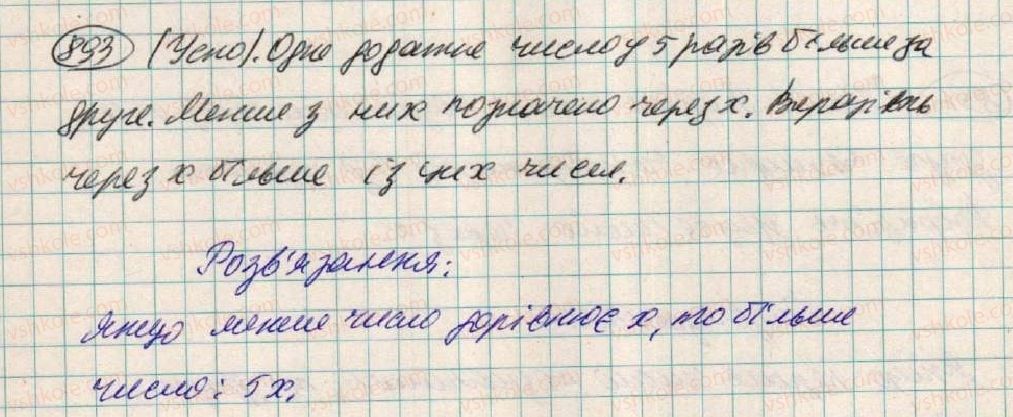 893 (Усно). Одне додатне число у 5 разів більше за
друге. Менше з них позначено через х. Виразіть
через х більше із цих чисел.
Розв'язання:
Якщо менше число дорівнює х, то більше
число: 5х.